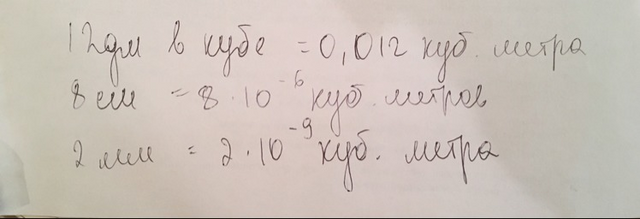 12дм в кубе = 0,012 куб. метра
8 см = 8 · 10⁻⁶ куб. метров
2 мм = 2 · 10⁻⁹ куб. метра